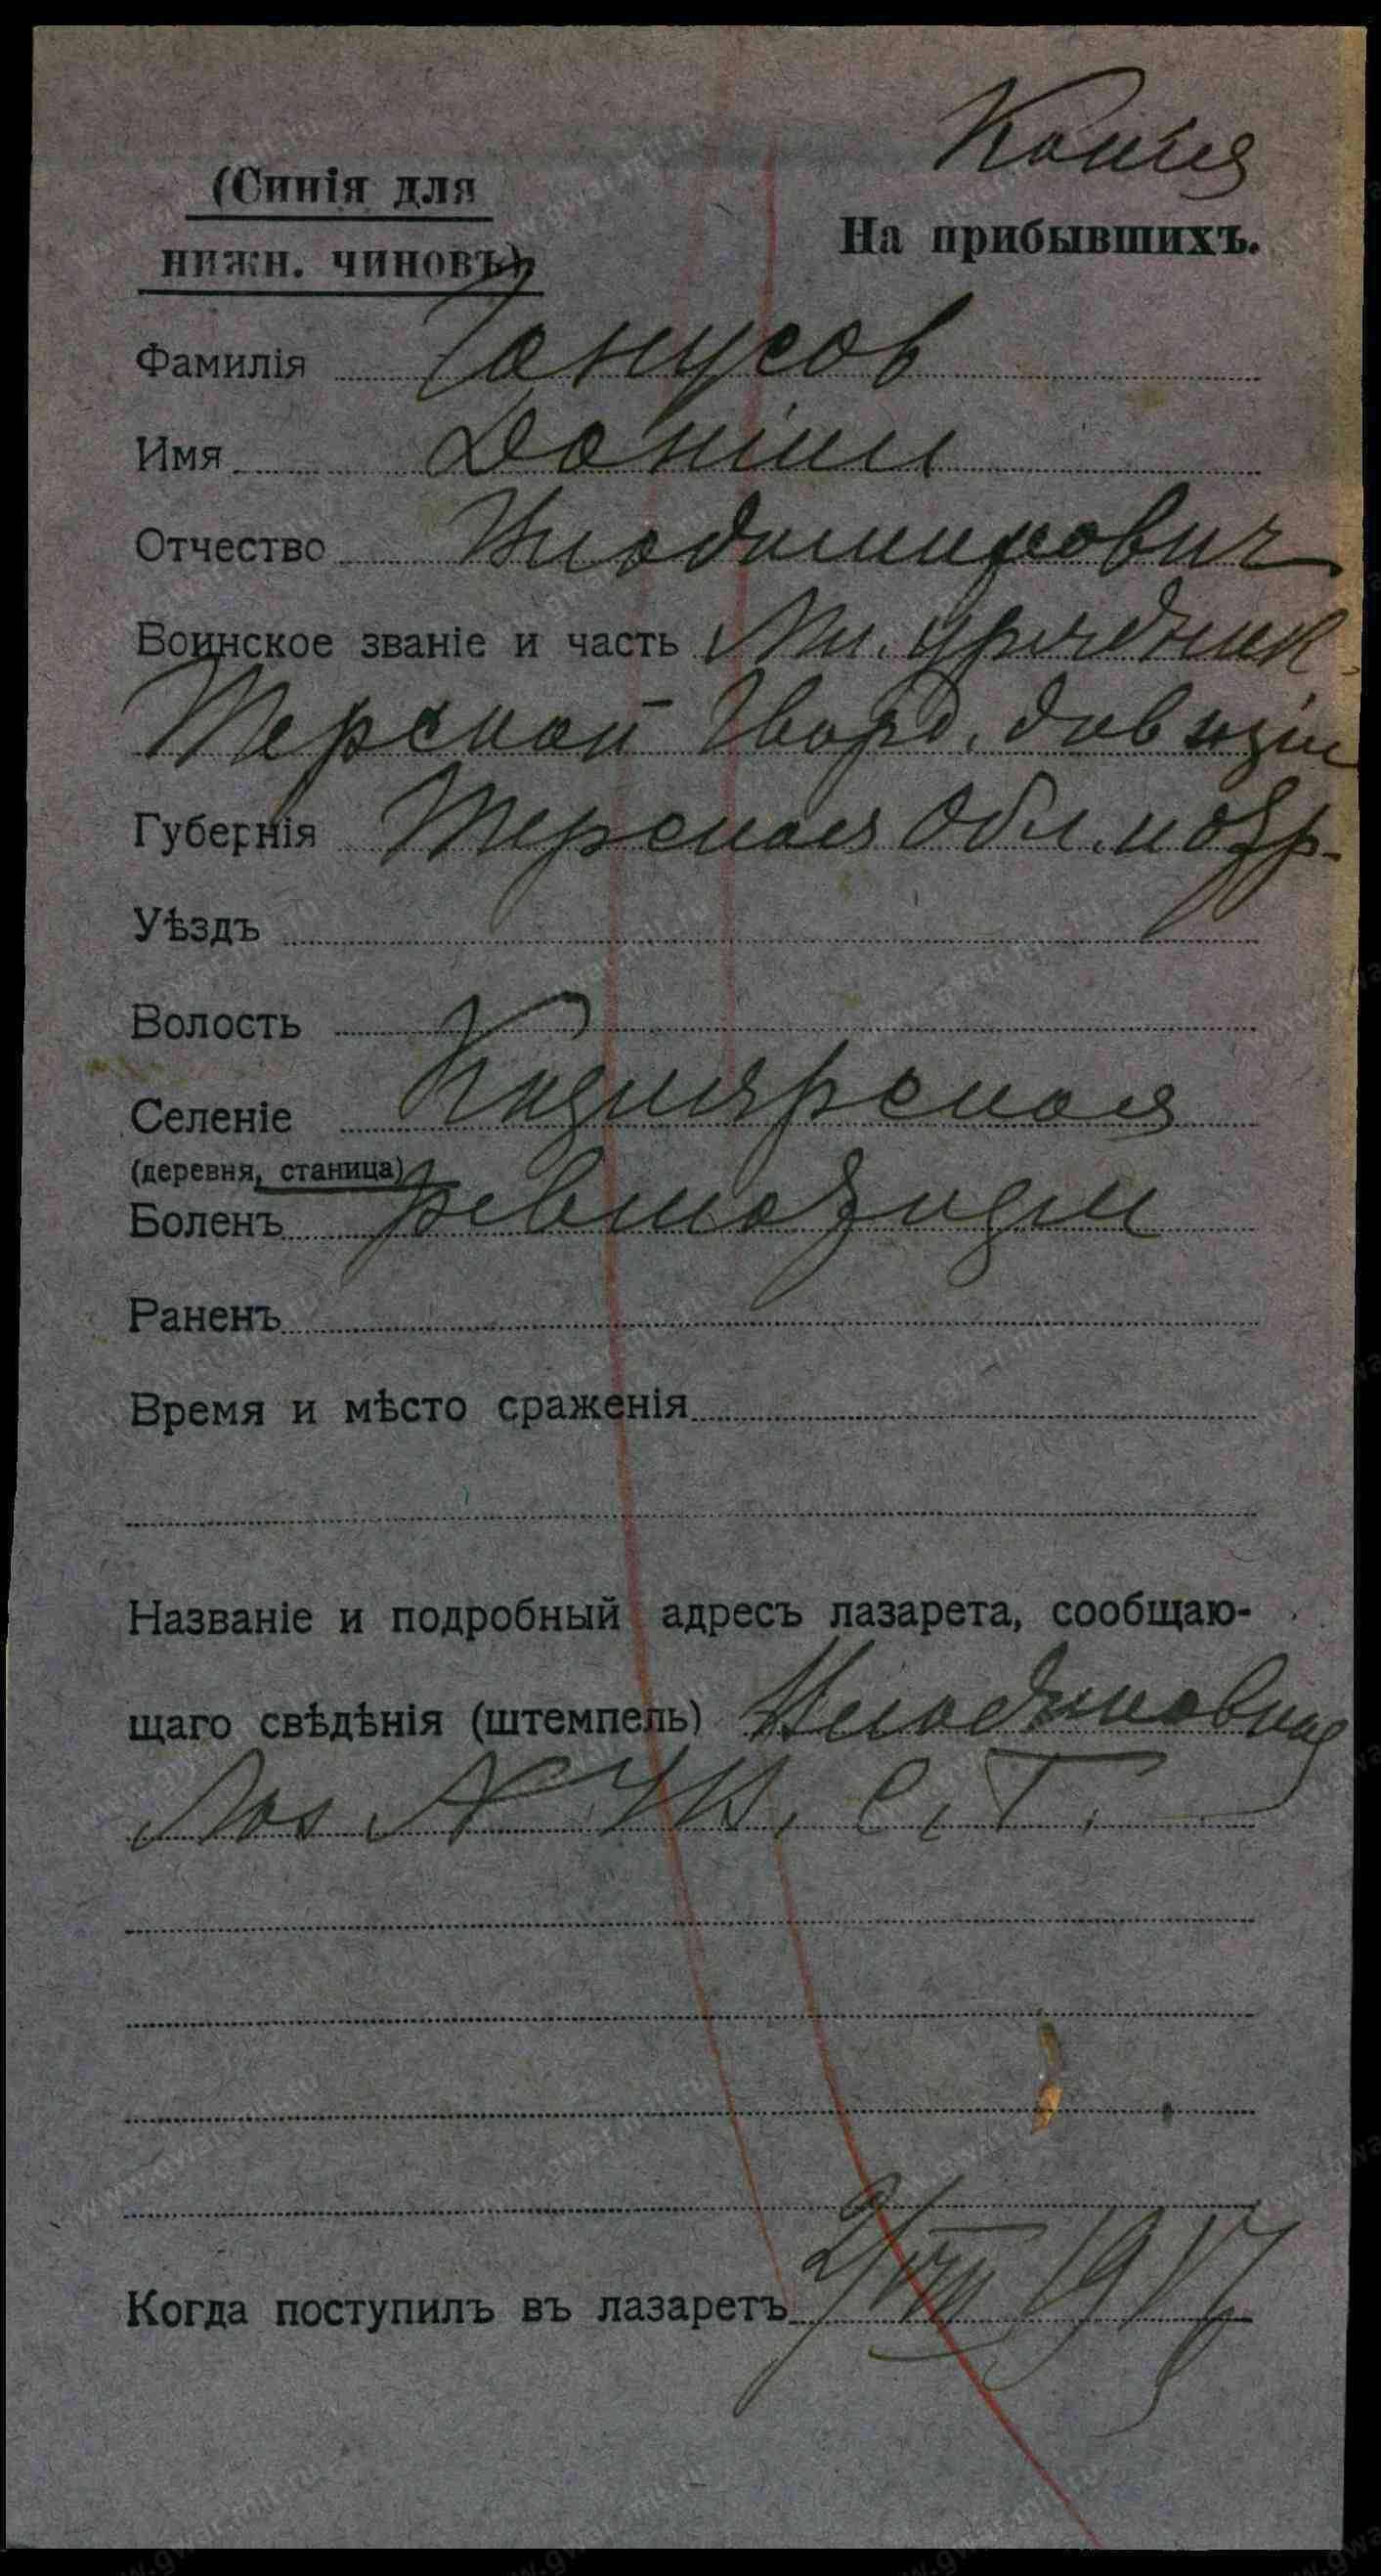 Копія
(Синія для
нижн. чиновъ)
На прибывшихъ.
Фамилія Ганусов
Имя Даніил
Отчество Владимирович
Воинское званіе и часть Мл. урядник
Терской Гвард. дивизіи
Губернія Терская Обл.
Уѣздъ
Волость
Селеніе Кизлярская
(деревня, станица)
Боленъ ревматизм
Раненъ
Время и мѣсто сраженія
Названіе и подробный адресъ лазарета, сообщаю-
щаго свѣдѣнія (штемпель)
Когда поступилъ въ лазаретъ 2/VIII 1917